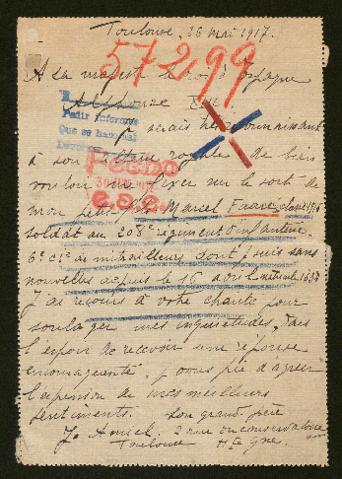 Toulouse, 26 mai 1917.
572199
A sa majesté le roi d'Espagne
Alphonse XIII
Pedir informe
Que se
je serais très reconnaissant
à son de bien
vouloir me sur le sort de
mon petit fils Marcel Faure classe 1916
soldat au 208e régiment d'infanterie
6e Cie de mitrailleurs dont je suis sans
nouvelles depuis le 16 avril matricule
J'ai recours à votre charité pour
soulager mes inquiétudes, dans
l'espoir de recevoir une réponse
encourageante. je vous prie d'agréer
l'expression de mes meilleurs
sentiments. son grand-père
J. 2 rue du conservatoire
Toulouse Hte Gne.